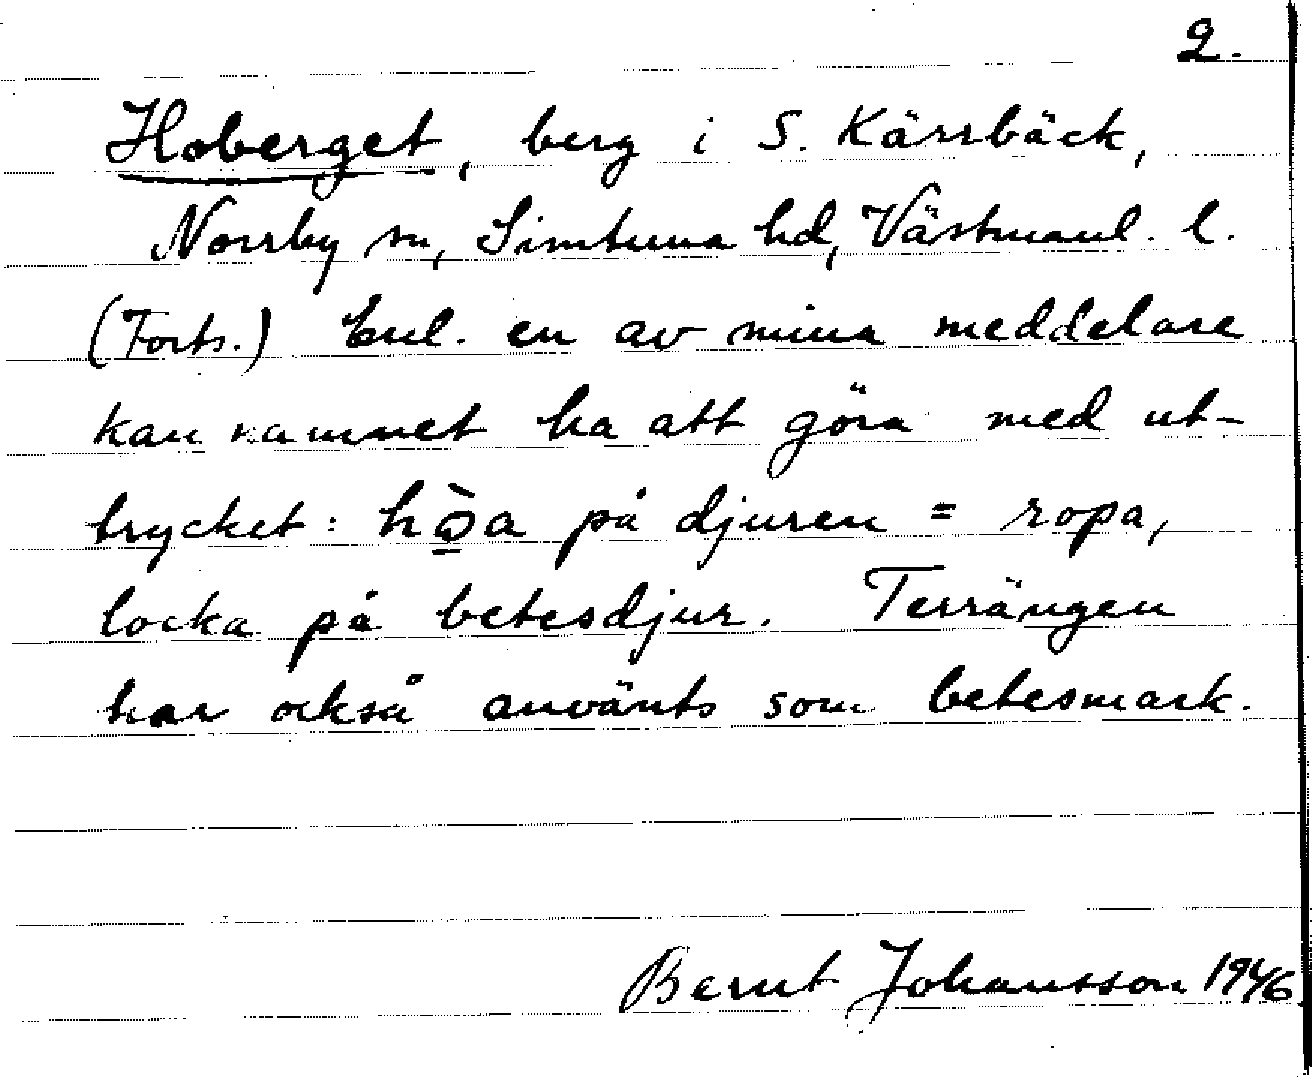 2.
Hoberget, berg i S. Kärrbäck,
Norrby sn, Simtuna hd, Västmanl. l.
(Forts.) Enl. en av mina meddelare
kan namnet ha att göra med ut-
trycket: hò̠a på djuren = ropa,
locka på betesdjur. Terrängen
har också använts som betesmark.
Bernt Johansson 1946